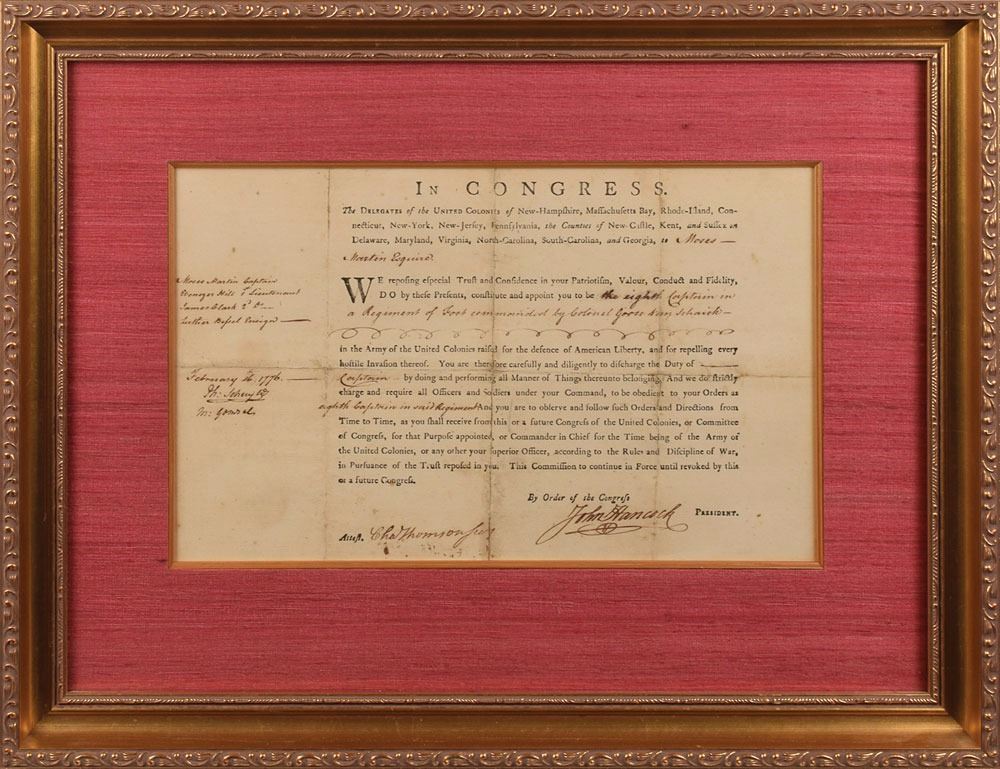 IN CONGRESS.
The DELEGATES of the UNITED COLONIES of New-Hampshire, Massachusetts Bay, Rhode-Island, Con-
necticut, New-York, New-Jersey, Pennsylvania, the Counties of New-Castle, Kent, and Sussex on
Delaware, Maryland, Virginia, North-Carolina, South-Carolina, and Georgia, to Moses
Martin Esquire
WE reposing especial Trust and Confidence in your Patriotism, Valour, Conduct and Fidelity,
DO by these Presents, constitute and appoint you to be the eighth Captain in
a Regiment of Foot commanded by Colonel Goose Van Schaick
in the Army of the United Colonies raised for the defence of American Liberty, and for repelling every
hostile Invasion thereof. You are therefore carefully and diligently to discharge the Duty of
Captain by doing and performing all Manner of Things thereunto belonging. And we do strictly
charge and require all Officers and Soldiers under your Command, to be obedient to your Orders as
eighth Captain in said Regiment And you are to observe and follow such Orders and Directions from
Time to Time, as you shall receive from this or a future Congress of the United Colonies, or Committee
of Congress, for that Purpose appointed, or Commander in Chief for the Time being of the Army of
the United Colonies, or any other your Superior Officer, according to the Rules and Discipline of War,
in Pursuance of the Trust reposed in you. This Commission to continue in Force until revoked by this
or a future Congress.
By Order of the Congress
John Hancock PRESIDENT.
Attest. Cha Thomson Secy
Moses Martin Captain
Hill 1 Lieutenant
James Clark 2d Do
Luther Ensign
February 1776.
Ph: Schuyler
M: General